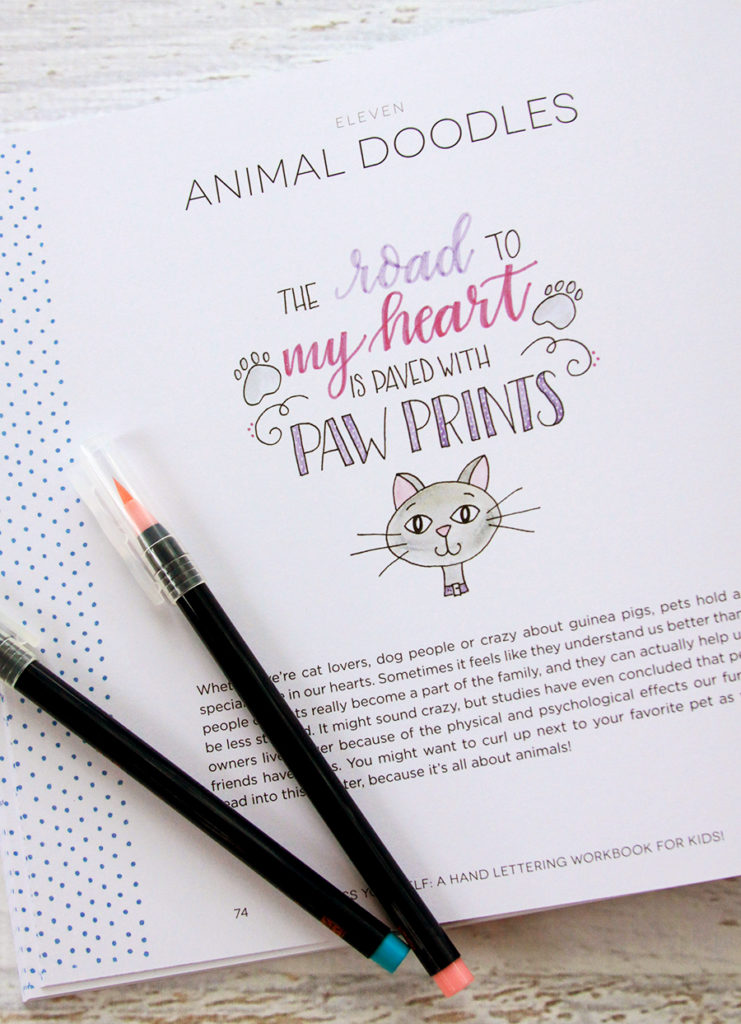 ELEVEN
ANIMAL DOODLES
THE road TO
my heart
IS PAVED WITH
PAW PRINTS
we're cat lovers, dog people or crazy about guinea pigs, pets hold a
special in our hearts. Sometimes it feels like they understand us better than
people really become a part of the family, and they can actually help u
be less It might sound crazy, but studies have even concluded that pe
owners because of the physical and psychological effects our fur
friends have You might want to curl up next to your favorite pet as
into this because it's all about animals!
A HAND LETTERING WORKBOOK FOR KIDS!
74